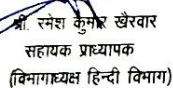 श्री. रमेश कुमार खैरवार
सहायक प्राध्यापक
(विभागाध्यक्ष हिन्दी विभाग)